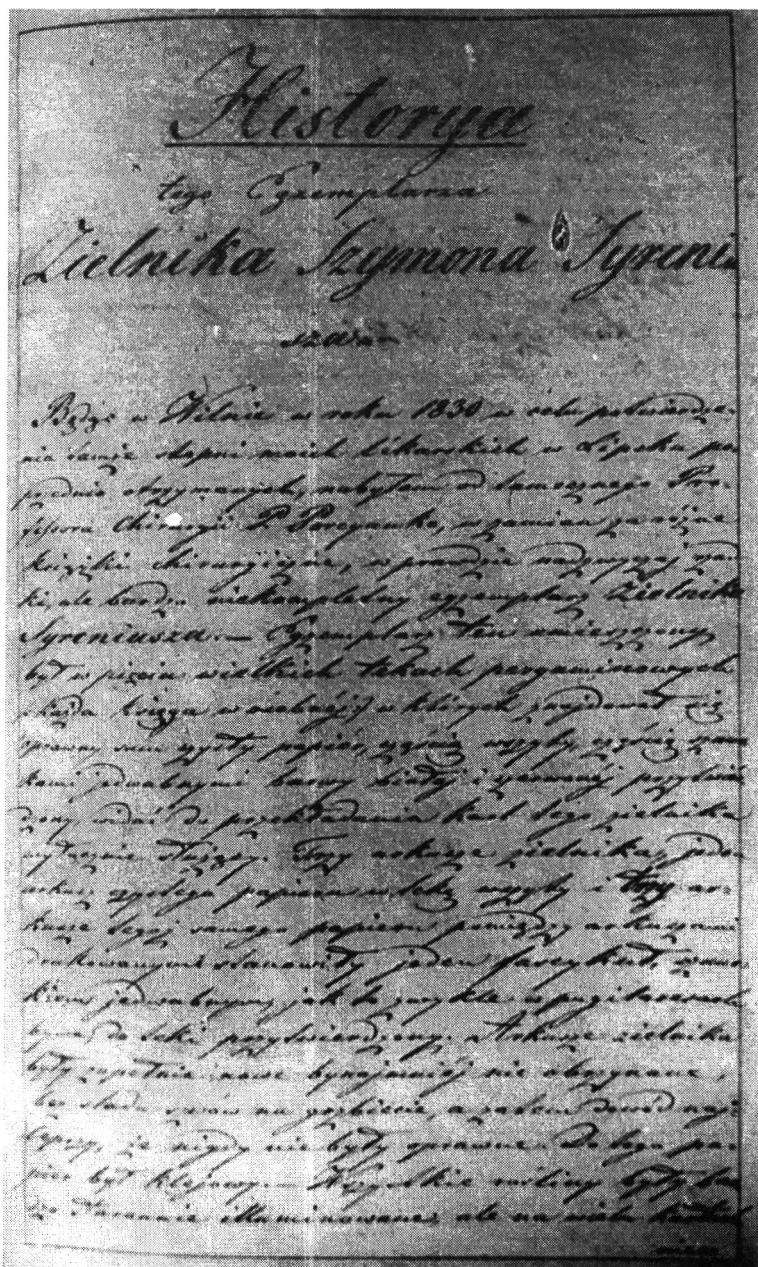 Historya
tego Egzemplarza
Zielnika Szymona Syreni
szza
Będąc w Wilnie w roku 1830 w celu potwierdze-
nia stopni moich lékarskich w Lipsku po
przednio otrzymanych, nabyłem od tamecznego Pro-
fessora Chirurgii P. Porcyanko, w zamian za różne
książki chirurgiczne, w prawdzie nadzwyczaj rzad
ki, ale bardzo niekompletny egzemplarz Zielnika
Syreniusza. — Egzemplarz ten umieszczony
był w pięciu wielkich tekach pergaminowych
(każda księga w osobnéj) w których znajdował się
oprawny czysty papier, wszyty
jedwabnymi barwy białéj i czerwonej
do przekładania kart tego zielnika
wyłącznie służący. Trzy arkusze zielnika, jeden
arkusz czystego papieru w tekę wszyty i trzy ar-
kusze tegoż samego papieru pomiędzy arkuszami
drukowanymi stanowiły jeden fascykuł,
jedwabnym jak to zwykle w
bywa, do teki przytwierdzony. Arkusze zielnika
były zupełnie nowe bynajmniéj nie obrzynane,
bez śladu szwów na grzbiecie a zatem dowód naj-
lepszy, że nigdy nie były oprawne. Do tego pa-
pier był klejowy. — Wszystkie rośliny były bar
dzo starannie illuminowane, ale na wielu kartach